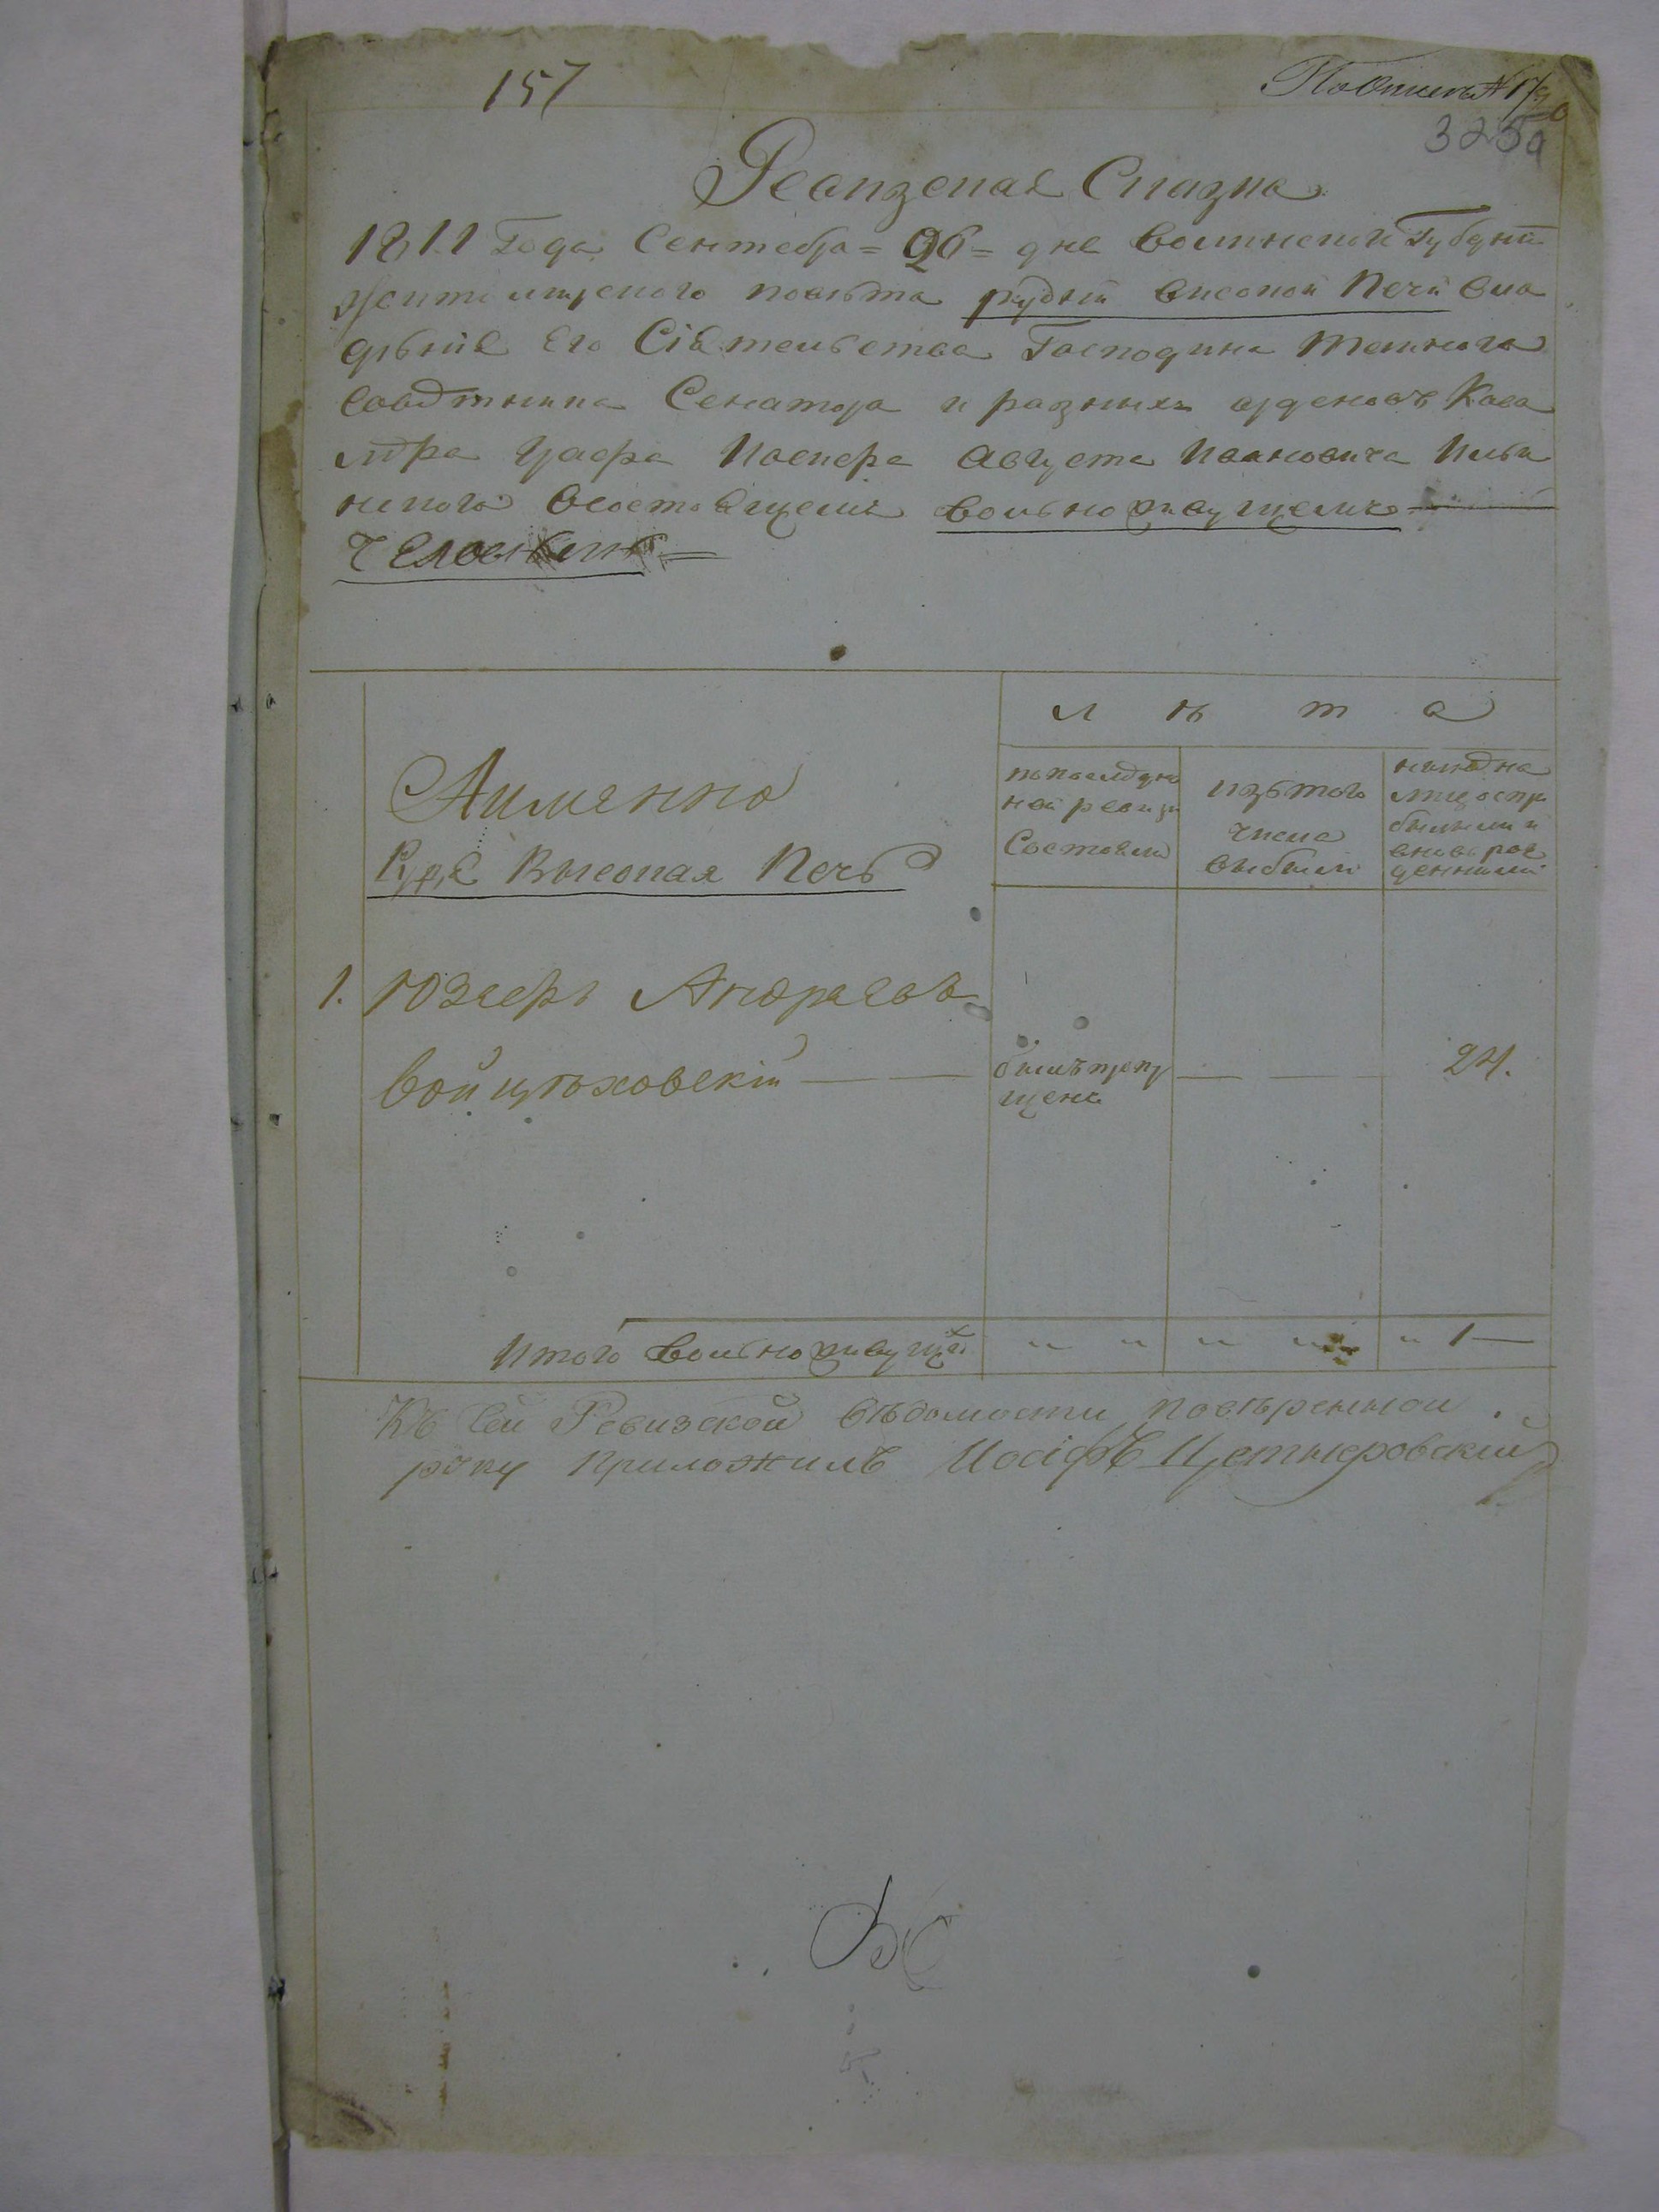 157
По описи № 17
325а
Ревизская Сказка
1811 Года Сентебра = 26 = дня Волинской Губернии
Житомирского повѣта рудни високой Печи вла
дѣния Его Сіятельства Господина Тайнаго
Совѣтника Сенатора и разныхъ орденовъ Кава
лѣра Графа Августа Ивановича Илин
ского о состоящемъ волноживущемъ
человѣкѣ
Л ѣ т а
Аимянно
Рудня Высокая Печь
по последне
ней ревизи
Состояли
изъ того
числа
выбыли
нынѣ на
лицо с при
былыми и
вновь рож
денными
1. Юзефъ Андреевъ
Войцѣховскій
былъ пропу
щенъ
24.
Итого волноживущихъ
1
Къ сей Ревизской вѣдомости повѣренной
руку приложилъ Иосифъ Цетнеровский